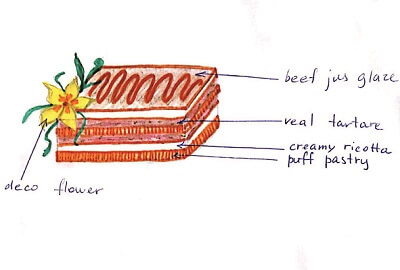 beef jus glaze
veal tartare
creamy ricotta
puff pastry
deco flower